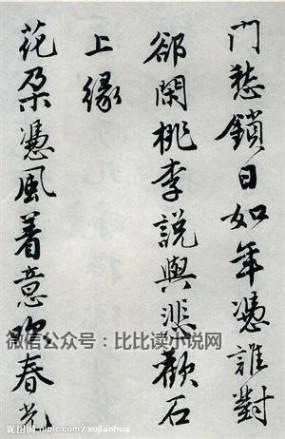 門愁鎖日如年憑誰對
郤閑桃李說與悲歡石
上緣
花朵憑風着意吹春光
微信公众号：比比读小说网
昵图网 nipic.com/xujianhua